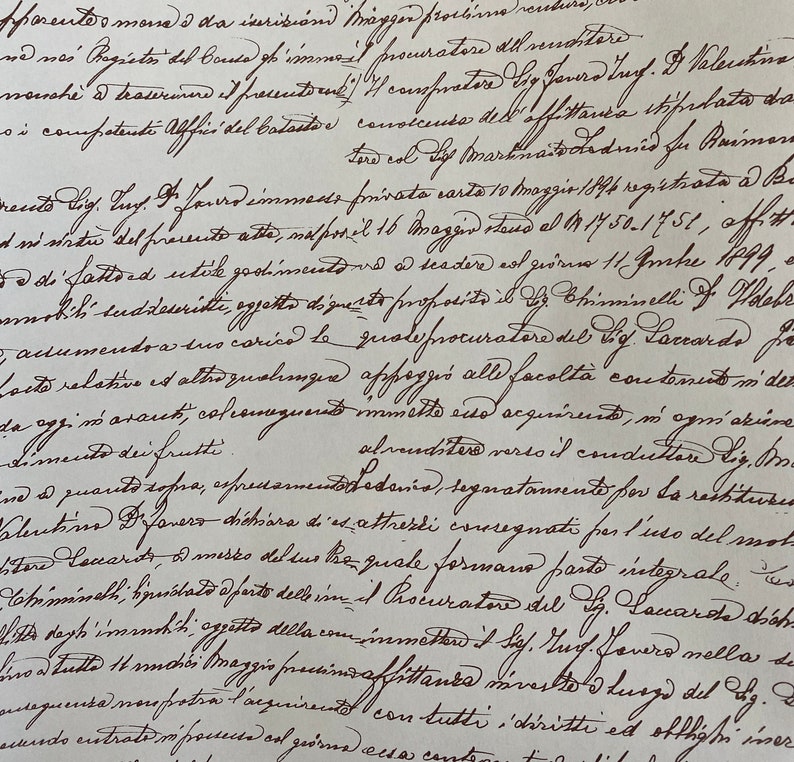 apparente o meno e da iscrizioni
ne nei Registri del Censo gli immo=
nonchè a trascrivere il presente
o i competenti Uffici del Catasto e
Sig. Ing. Dr Favero immesso
del presente atto, nel pos=
o e di fatto ed utile godimento
mmobili suddescritti, oggetto di que=
, assumendo a suo carico le
relative ed altro qualunque
da oggi in avanti, col conseguente
dimento dei frutti.
a quanto sopra, espressamente
Valentino Dr Favero dichiara di es=
ditore Saccardo, a mezzo del suo Pro=
Chiminelli, liquidato a parte delle im=
fitto degli immobili, oggetto della com=
sino a tutto 11 undici Maggio prossimo
conseguenza non potrà l'acquirente
essendo entrato in possesso col giorno
Maggio prossimo venturo,
il procuratore del venditore
Il compratore Sig. Favero Ing. Dr Valentino
conoscenza dell'affittanza stipulata da
tore col Sig. Martinato Lodovico fu Raimon
privata carta 10 Maggio 1896 registrata a Ba
il 16 Maggio stesso al N 1750-1751, affitt
va a scadere col giorno 11 9mbre 1899, e
sto proposito il Sig. Chiminelli Dr Ildebr
quale procuratore del Sig. Saccardo
appoggio alle facoltà contenute in det
immette esso acquirente, in ogni azione
al venditore verso il conduttore Sig. Ma
Lodovico, segnatamente per la restituzio
attrezzi consegnati per l'uso del mol
quale formano parte integrale.
il Procuratore del Sig. Saccardo dichi
immettere il Sig. Ing. Favero nella
affittanza investito a luogo del Sig.
con tutti i diritti ed obblighi iner
essa